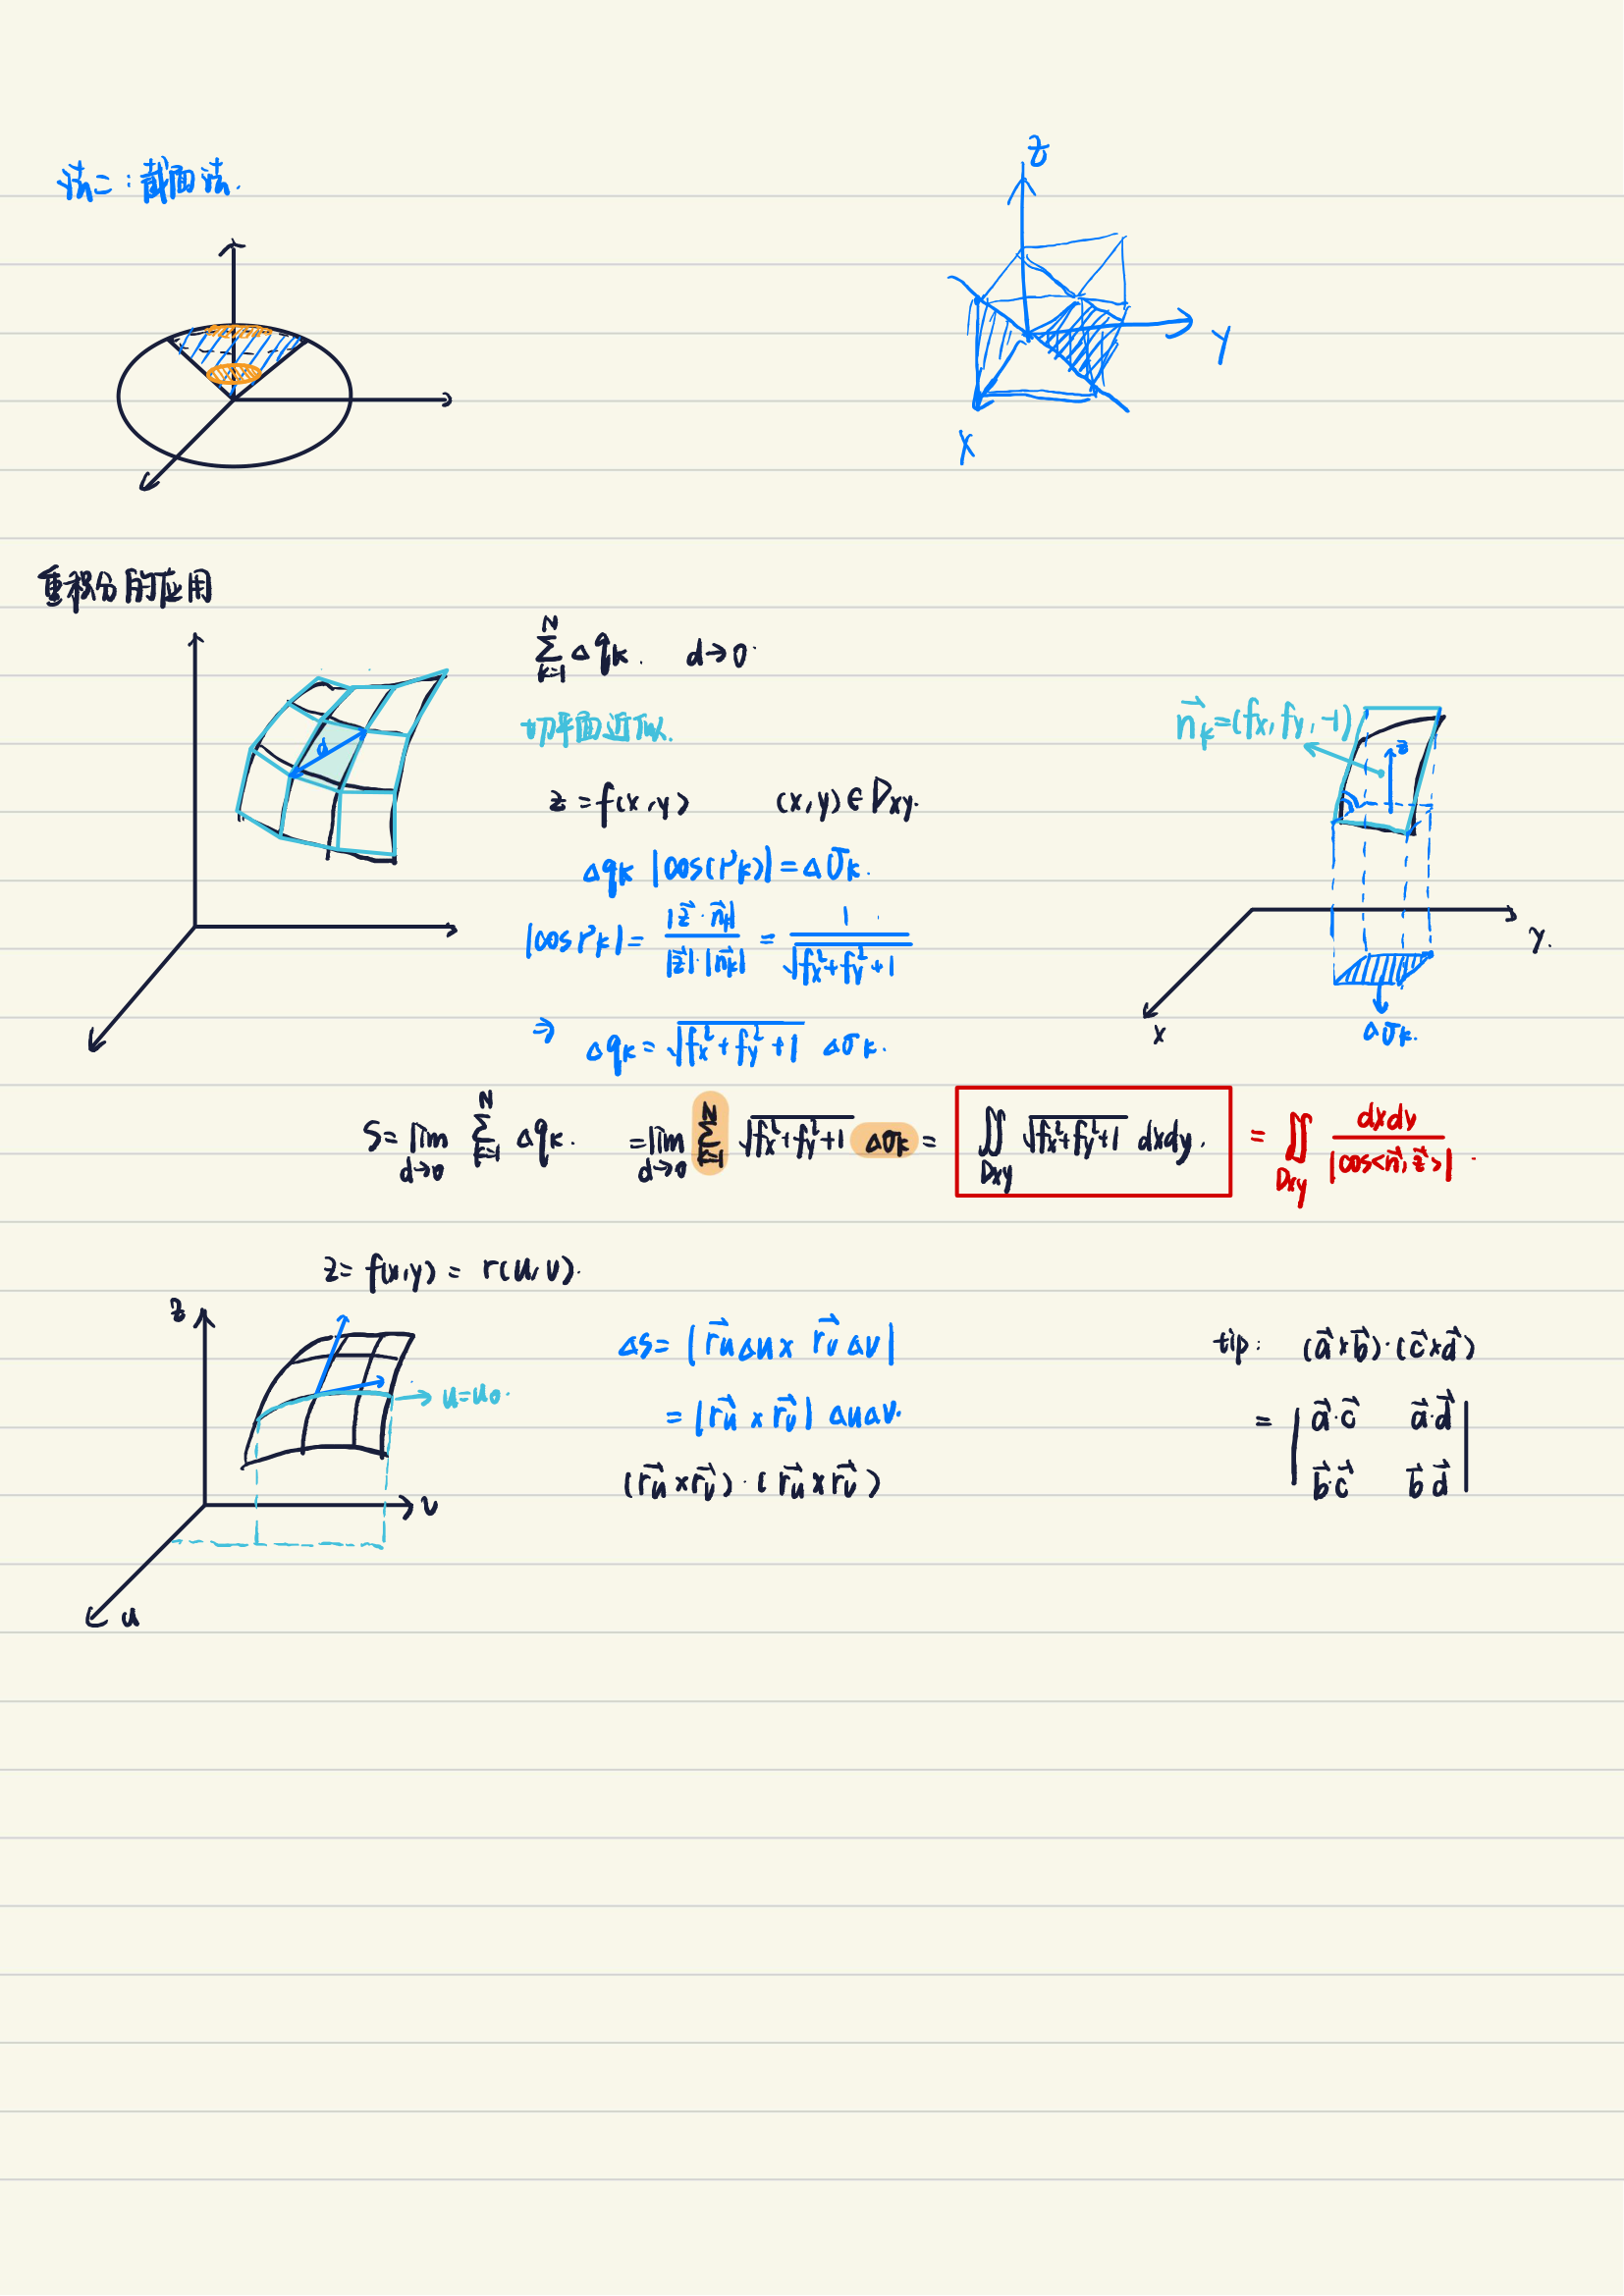 法二：截面法.
z
y
x
重积分的应用
∑_{k=1}^{N} Δq_k. d→0.
切平面近似.
n⃗_k=(fx, fy, -1)
z
d
z=f(x,y) (x,y)∈Dxy.
Δq_k |cos(r_k)|=Δσ_k.
|cos r_k|= |z⃗·n⃗_k| / |z⃗|·|n⃗_k| = 1 / √(fx²+fy²+1)
y.
x
Δσ_k.
⇒ Δq_k=√(fx²+fy²+1) Δσ_k.
S=lim_{d→0} ∑_{k=1}^{N} Δq_k. =lim_{d→0} ∑_{k=1}^{N} √(fx²+fy²+1) Δσ_k = ∬_{Dxy} √(fx²+fy²+1) dxdy. = ∬_{Dxy} dxdy / |cos<n⃗,z⃗>|.
z=f(x,y)=r(u,v).
z
u=u₀.
v
u
Δs=|r⃗u Δu× r⃗v Δv|
=|r⃗u × r⃗v| ΔuΔv.
(r⃗u×r⃗v)·(r⃗u×r⃗v)
tip: (a⃗×b⃗)·(c⃗×d⃗)
= | a⃗·c⃗ a⃗·d⃗ |
| b⃗·c⃗ b⃗ d⃗ |